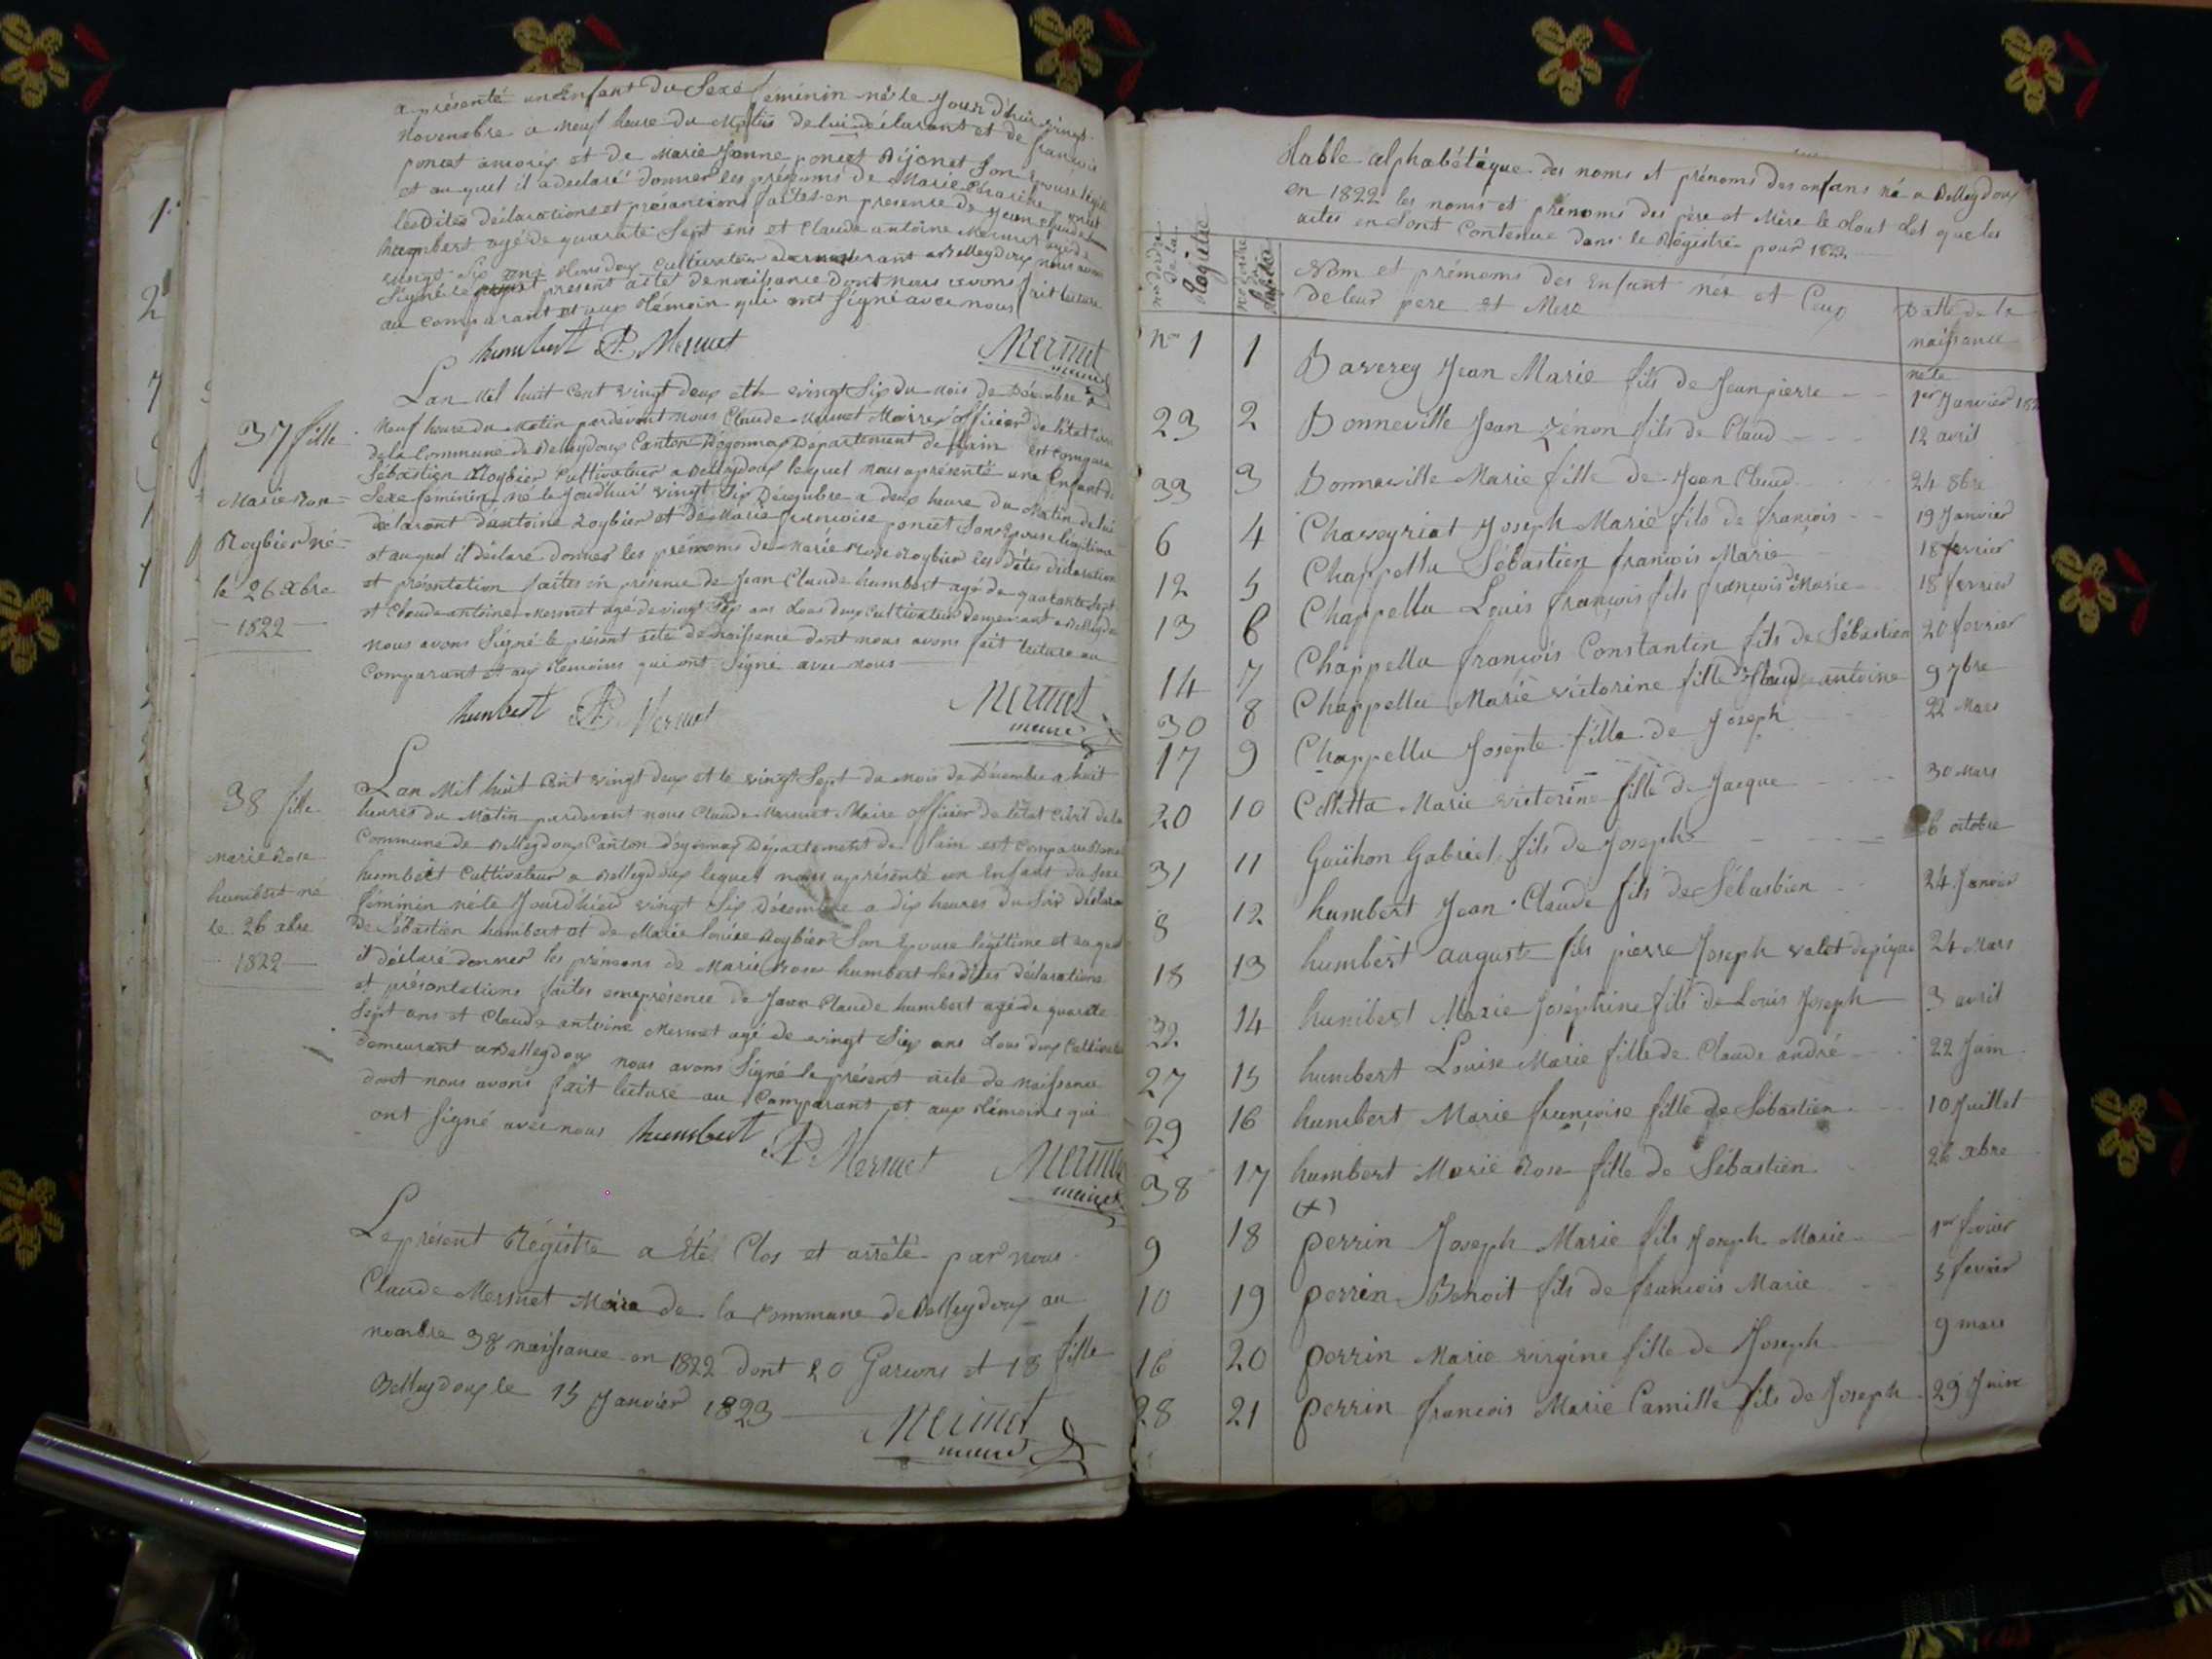 a présenté un Enfant du Sexe féminin né le Jour d'hui vingt
Novembre a neuf heure du Matin de lui déclarant et de françois
poncet et de Marie Jeanne poncet Bijonet Son Epouse
et au quel il a declaré donner les prénoms de Marie
les Dites déclarations et présantions faites en presence de Jean Claude
humbert agé de quarante Sept ans et Claude antoine Mermet agé de
vingt Six ans tous deux cultivateur demeurant a Belleydoux nous avons
Signé le present acte de naissance dont nous avons fait lecture
au comparant et aux témoin qui ont Signé avec nous
humbert A. Mermet Mermet
maire
Lan Mil huit Cent vingt deux et le vingt Six du mois de Décembre a
37 fille
Neuf heure du Matin pardevant nous Claude Mermet Maire officier de l'état Civil
de la Commune de Belleydoux Canton Doyonnax Département de Lain est Comparu
Sébastien Roybier Cultivateur a Belleydoux lequel nous a présenté une Enfant du
Marie Rose
Sexe feminin né le Jourdhui vingt Six Décembre a deux heure du Matin de lui
déclarant d'antoine Roybier et de Marie francoise poncet Son Epouse légitime
Roybier né
et au quel il déclaré donner les prénoms de Marie Rose Roybier les dites déclaration
le 26 Xbre
et présentation faites en présence de Jean Claude humbert agé de quarante Sept
1822
et Claude antoine Mermet agé de vingt Six ans tous deux Cultivateur Demeurant a Belleydoux
nous avons Signé le présent acte de naissance dont nous avons fait lecture au
Comparant et aux temoins qui ont Signé avec nous
humbert A. Mermet Mermet
maire
Lan Mil huit Cent vingt deux et le vingt Sept du Mois de Décembre a huit
38 fille
heures du Matin pardevant nous Claude Mermet Maire officier de l'état Civil de la
Commune de Belleydoux Canton d'oyonnax Département de Lain est Comparu
Marie Rose
humbert Cultivateur a Belleydoux lequel nous a présenté un Enfant du Sexe
humbert né
féminin né le Jourdhieu vingt Six Décembre a dix heures du Soir
le 26 xbre
de Sébastien humbert et de Marie louise Roybier Son Epouse légitime et auquel
1822
il déclaré donner les prénoms de Marie Rose humbert les dites déclarations
et présentations faites en présence de Jean Claude humbert agé de quarante
Sept ans et Claude antoine Mermet agé de vingt Six ans tous deux Cultivateur
demeurant a Belleydoux nous avons Signé le présent acte de naissance
dont nous avons fait lecture au Comparant et aux témoins qui
ont Signé avec nous humbert A. Mermet Mermet
maire
Le présent Régistre a été Clos et arrêté par nous
Claude Mermet Maire de la Commune de Belleydoux au
nombre 38 naissance en 1822 dont 20 Garcons et 18 fille
Belleydoux le 15 Janvier 1823
Mermet
maire
table alphabétique des noms et prénoms des enfans né a Belleydoux
en 1822 les noms et prénoms des père et Mère le tout tel que les
actes en Sont Contenue dans le Régistre pour 1822
no dordre de la Registre
no dordre
Nom et prénoms des Enfant nés et Ceux
de leur pere et Mere
Datte de la
naissance
né le
No 1 1 Baverey Jean Marie fils de Jean pierre 1er Janvier 182
23 2 Bonneville Jean Zénon fils de Claud 12 avril
33 3 Bonneville Marie fille de Jean Claud 24 8bre
6 4 Chaveyriat Joseph Marie fils de françois 19 Janvier
12 5 Chappellu Sébastien francois Marie 18 fevrier
13 6 Chappellu Louis françois fils françois Marie 18 fevrier
14 7 Chappellu françois Constantin fils de Sébastien 20 fevrier
30 8 Chappellu Marie victorine fille de Claude antoine 9 7bre
17 9 Chappellu Josepte fille de Joseph 22 Mars
20 10 Colletta Marie victorine fille de Jacque 30 Mars
31 11 Gaühon Gabriel fils de Joseph 26 octobre
8 12 humbert Jean Claude fils de Sébastien 24 Janvier
18 13 humbert auguste fils pierre Joseph valet depique 24 Mars
22 14 humbert Marie Joséphine fils de Louis Joseph 3 avril
27 15 humbert Louise Marie fille de Claude andré 22 Juin
29 16 humbert Marie françoise fille de Sébastien 10 Juillet
38 17 humbert Marie Rose fille de Sébastien 26 xbre
(x)
9 18 perrin Joseph Marie fils Joseph Marie 1er fevrier
10 19 perrin Benoit fils de francois Marie 5 fevrier
16 20 perrin Marie virgine fille de Joseph 9 mars
28 21 perrin francois Marie Camille fils de Joseph 29 Juin